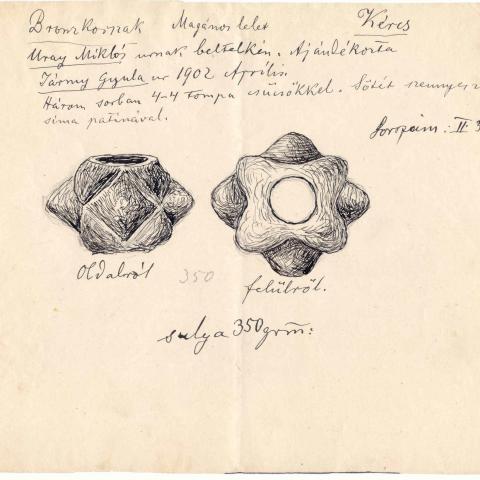 Bronzkorszak Magános lelet Kércs
Uray Miklós urnak beltelkén. Ajándékozta
Jármy Gyula ur 1902 Április.
Három sorban 4-4 tompa csücsökkel. Sötét szennyesz
sima patinával.
Sorszám: II 3
Oldalról 350 felülről.
sulya 350 grm: